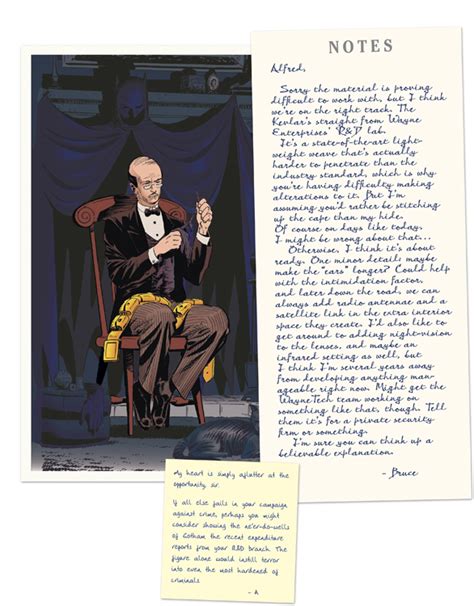 NOTES
Alfred,
Sorry the material is proving
difficult to work with, but I think
we're on the right track. The
Kevlar's straight from Wayne
Enterprises' R&D lab.
It's a state-of-the-art light-
weight weave that's actually
harder to penetrate than the
industry standard, which is why
you're having difficulty making
alterations to it. But I'm
assuming you'd rather be stitching
up the cape than my hide.
Of course on days like today,
I might be wrong about that...
Otherwise, I think it's about
ready. One minor details maybe
make the "ears" longer? Could help
with the intimidation factor,
and later down the road, we can
always add radio antennae and a
satellite link in the extra interior
space they create. I'd also like to
get around to adding night-vision
to the lenses, and maybe an
infrared setting as well, but
I think I'm several years away
from developing anything man-
ageable right now. Might get the
WayneTech team working on
something like that, though. Tell
them it's for a private security
firm or something.
I'm sure you can think up a
believable explanation.
- Bruce
My heart is simply aflutter at the
opportunity, sir.
If all else fails in your campaign
against crime, perhaps you might
consider showing the ne'er-do-wells
of Gotham the recent expenditure
reports from your R&D branch. The
figure alone would instill terror
into even the most hardened of
criminals.
- A